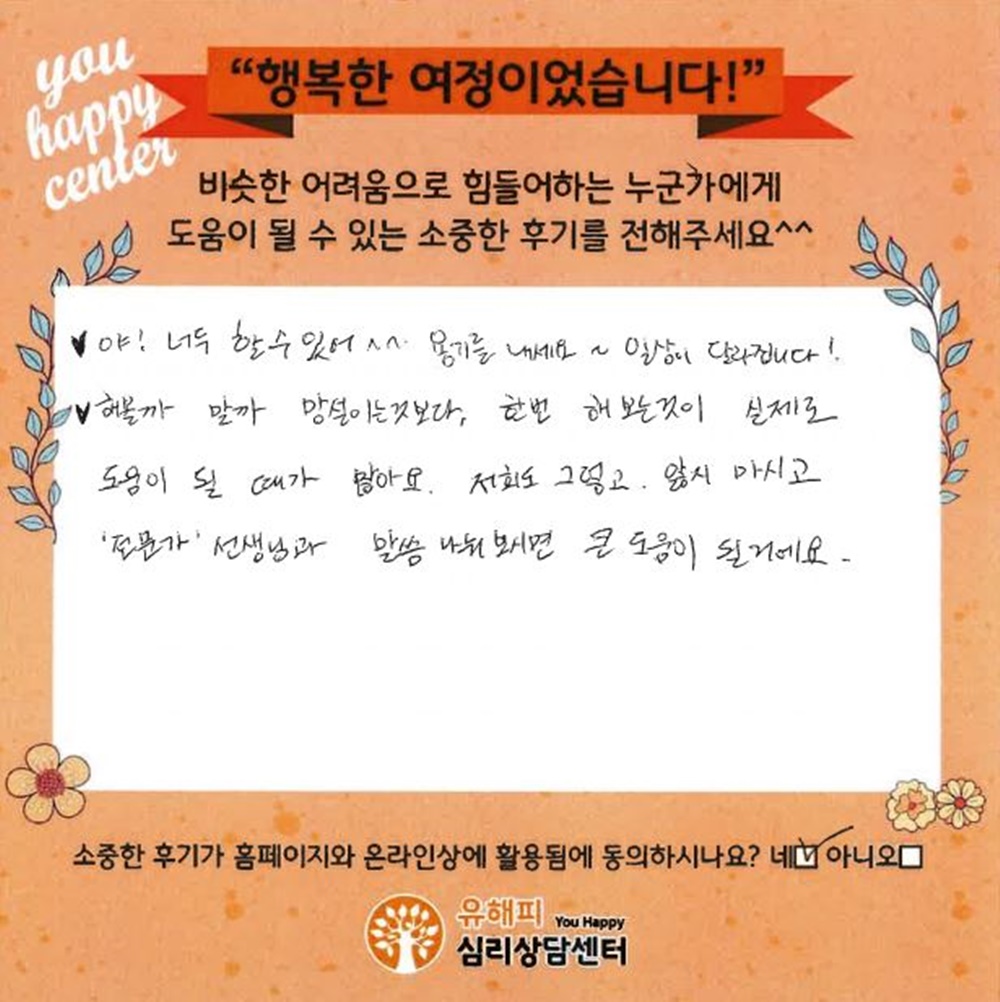 you
happy
center
“행복한 여정이었습니다!”
비슷한 어려움으로 힘들어하는 누군가에게
도움이 될 수 있는 소중한 후기를 전해주세요^^
♥ 야! 너두 할 수 있어 ^^ 용기를 내세요 ~ 일상이 달라집니다!
♥ 해볼까 말까 망설이는것보다, 한번 해 보는것이 실제로
도움이 될 때가 많아요. 저희도 그렇고. 앓지 마시고
'전문가' 선생님과 말씀 나눠 보시면 큰 도움이 될거에요.
소중한 후기가 홈페이지와 온라인상에 활용됨에 동의하시나요? 네☑ 아니오☐
유해피 You Happy
심리상담센터